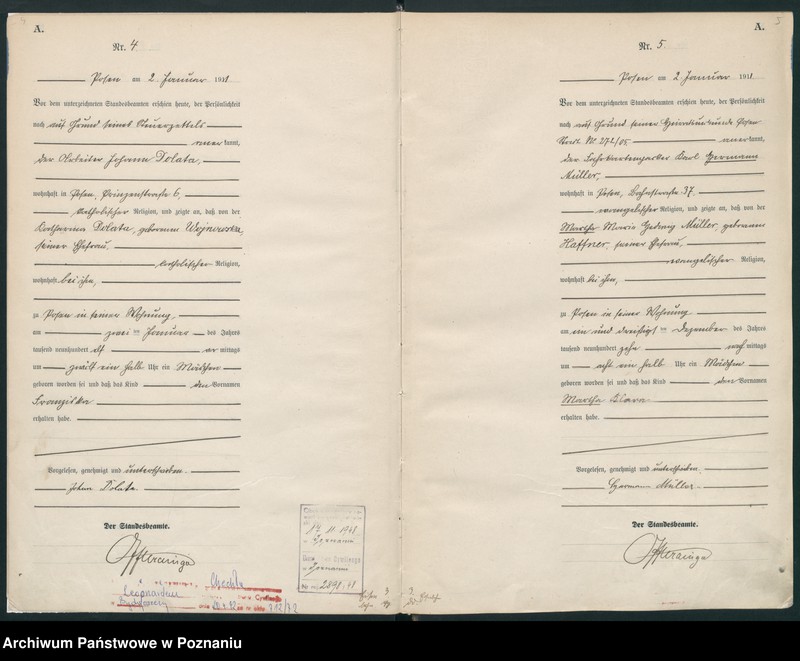 A.
Nr. 4
Posen am 2. Januar 1911
Vor dem unterzeichneten Standesbeamten erschien heute, der Persönlichkeit
nach auf Grund seines Steuerzettels
anerkannt,
der Arbeiter Johann Dolata,
wohnhaft in Posen, Prinzenstraße 6,
katholischer Religion, und zeigte an, daß von der
Katharina Dolata, geborenen Wojnowska,
seiner Ehefrau,
katholischer Religion,
wohnhaft bei ihm,
zu Posen in seiner Wohnung,
am zwei ten Januar des Jahres
tausend neunhundert elf vor mittags
um zwölf ein halb Uhr ein Mädchen
geboren worden sei und daß das Kind den Vornamen
Franziska
erhalten habe.
Vorgelesen, genehmigt und unterschrieben
Johann Dolata
Der Standesbeamte.
14. 11. 1941
2898/41
5
A.
Nr. 5
Posen am 2 Januar 1911
Vor dem unterzeichneten Standesbeamten erschien heute, der Persönlichkeit
nach auf Grund seiner Heiratsurkunde Posen
anerkannt,
der Fahrkartenausgeber Karl Hermann
Müller,
wohnhaft in Posen, 37,
evangelischer Religion, und zeigte an, daß von der
Martha Maria Hedwig Müller, geborenen
Haffner, seiner Ehefrau,
evangelischer Religion,
wohnhaft bei ihm,
zu Posen in seiner Wohnung
am ein und dreißigt ten Dezember des Jahres
tausend neunhundert zehn nach mittags
um acht ein halb Uhr ein Mädchen
geboren worden sei und daß das Kind den Vornamen
Martha Klara
erhalten habe.
Vorgelesen, genehmigt und unterschrieben
Hermann Müller
Der Standesbeamte.
Archiwum Państwowe w Poznaniu